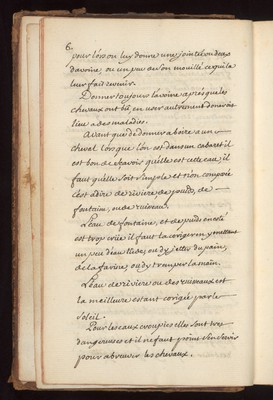 6.
pour lors on luy donne une jointée ou deux
davoine, ou un peu de son mouillé ce qui le
leur fait revenir.
Donner toujours lavoine apres que les
chevaux ont bû, en user autrement donneroit
lieu a des maladies.
Avant que de donner a boire a un
cheval lorsque lon est dans un cabaret il
est bon de scavoir quelle est cette eau, il
faut quelle soit simple et non composée
cest a dire de riviere de puids, de
fontaine, ou de ruisseau.
Leau de fontaine, et de puids en esté
est trop crüe il faut la corriger en y mettant
un peu deau tiede, ou dy jetter du pain,
de la farine, ou dy tremper la main.
Leau de riviere ou des ruisseaux est
la meilleure estant corrigée par le
soleil.
Pour les eaux croupies elles sont tres
dangereuses et il ne faut point sen servir
pour abreuver les chevaux.